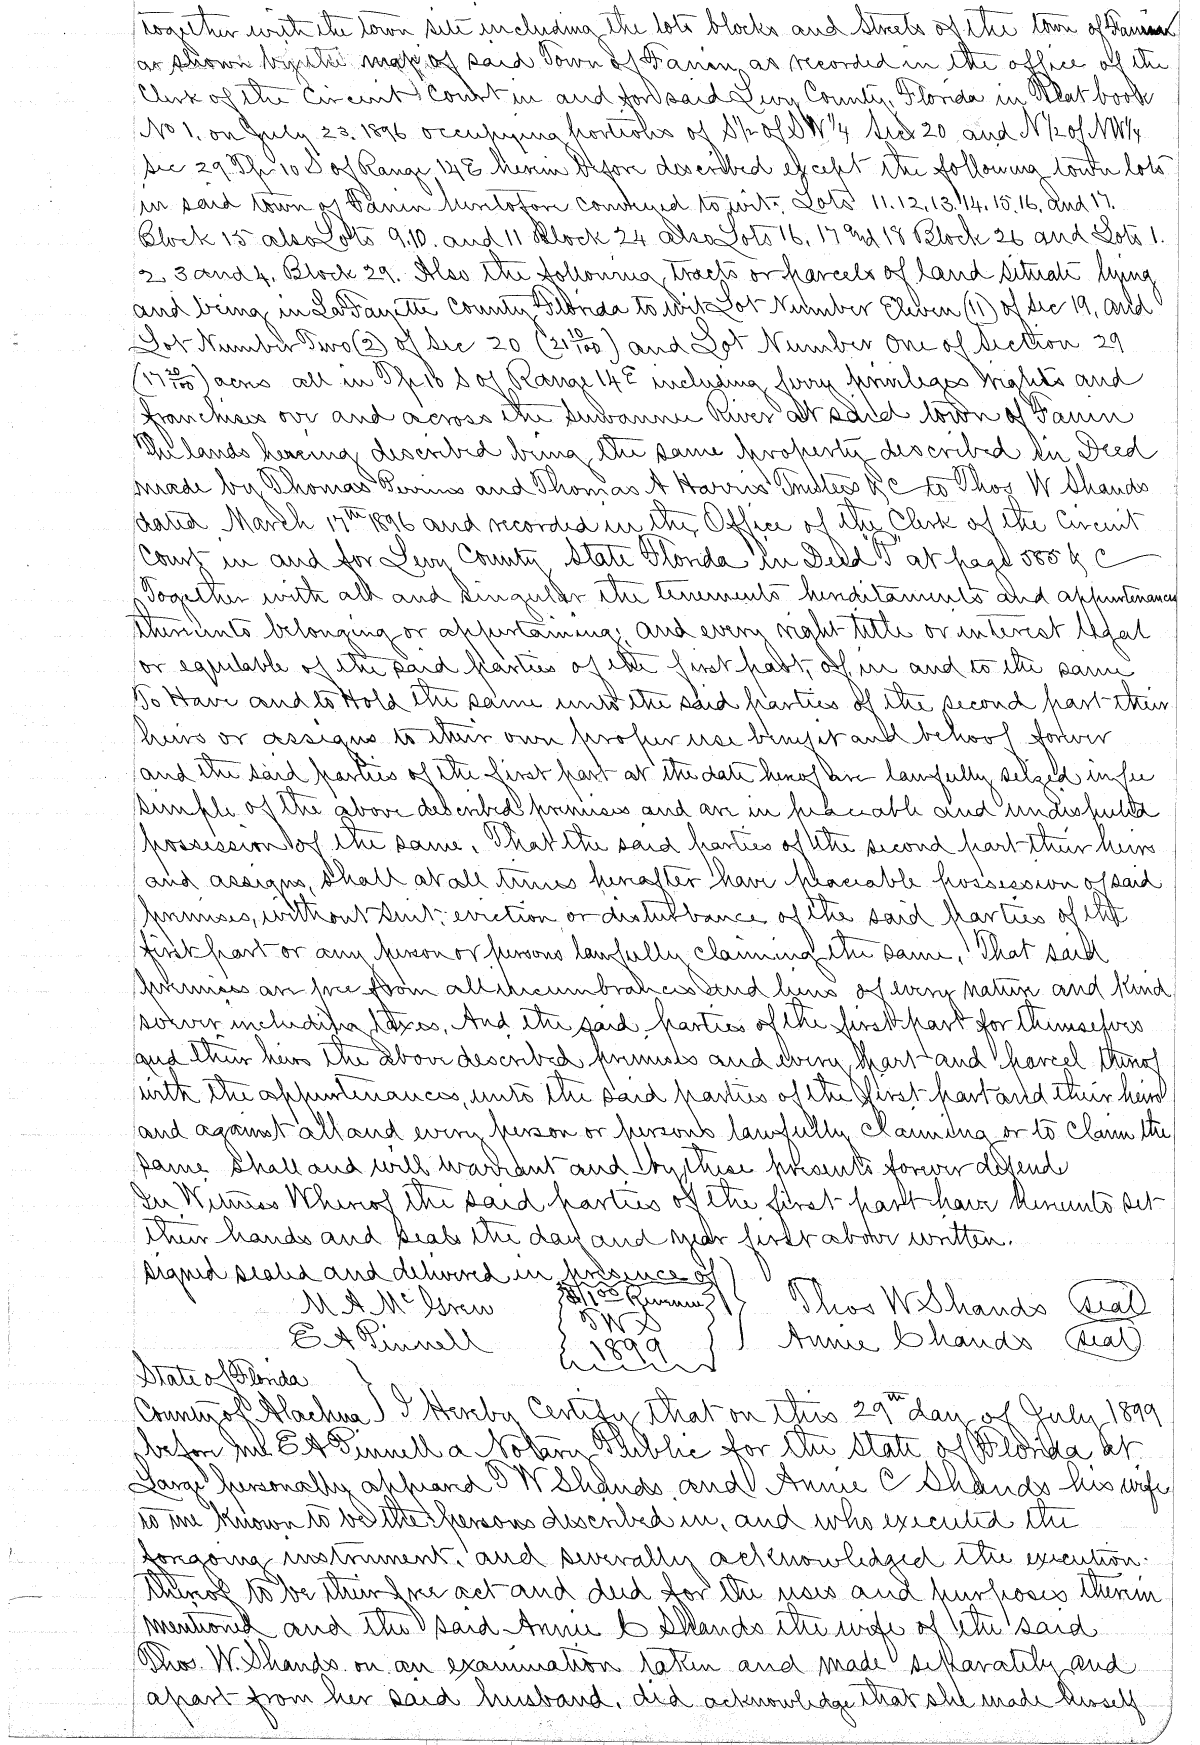 together with the town site including the lots blocks and Streets of the town of Fannin
as shown by the map of said Town of Fanin as recorded in the office of the
Clerk of the Circuit Court in and for said Levy County, Florida in Plat book
No 1. on July 23. 1896 occupying portions of S 1/2 of SW 1/4 Sec 20 and N 1/2 of NW 1/4
Sec 29. Tp 10 S of Range 14 E herein before described except the following town lots
in said town of Fanin heretofore conveyed to wit: Lots 11. 12. 13. 14. 15. 16. and 17.
Block 15 also Lots 9. 10. and 11 Block 24 also Lots 16, 17 and 18 Block 26 and Lots 1.
2. 3 and 4. Block 29. Also the following tracts or parcels of land situate lying
and being in LaFayette County Florida to wit Lot Number Eleven (11) of Sec 19, and
Lot Number Two (2) of Sec 20 (21 10/100) and Lot Number One of Section 29
(17 20/100) acres all in Tp 10 S of Range 14 E including ferry privileges rights and
franchises over and across the Suwannee River at said town of Fanin
The lands hereing described being the same property described in Deed
made by Thomas Perrins and Thomas A Harris Trustees & C to Thos W Shands
dated March 17th 1896 and recorded in the Office of the Clerk of the Circuit
Court in and for Levy County State Florida in Deed T at page 585 & C
Together with all and singular the tenements hereditaments and appurtenances
thereunto belonging or appertaining, and every right title or interest legal
or equitable of the said parties of the first part, of, in and to the same
To Have and to Hold the same unto the said parties of the second part their
heirs or assigns to their own proper use benefit and behoof forever
and the said parties of the first part at the date hereof are lawfully seized in fee
simple of the above described premises and are in peaceable and undisputed
possession of the same. That the said parties of the second part their heirs
and assigns, shall at all times hereafter have peaceable possession of said
premises, without suit, eviction or disturbance of the said parties of the
first part or any person or persons lawfully claiming the same. That said
premises are free from all incumbrances and liens of every nature and kind
soever including taxes. And the said parties of the first part for themselves
and their heirs the above described premises and every part and parcel thereof
with the appurtenances, unto the said parties of the first part and their heirs
and against all and every person or persons lawfully claiming or to claim the
same shall and will warrant and by these presents forever defend
In Witness Whereof the said parties of the first part have hereunto set
their hands and seals the day and year first above written.
Signed sealed and delivered in presence of
M. A. McGrew $1 00 Revenue Thos W Shands (seal)
E A Pinnell TWS 1899 Annie C Shands (seal)
State of Florida
County of Alachua I Hereby Certify that on this 29th day of July 1899
before me E A Pinnell a Notary Public for the State of Florida at
Large personally appeared T W Shands and Annie C Shands his wife
to me known to be the persons described in, and who executed the
foregoing instrument, and severally acknowledged the execution
thereof to be their free act and deed for the uses and purposes therein
mentioned and the said Annie C Shands the wife of the said
Thos. W. Shands on an examination taken and made separately and
apart from her said husband, did acknowledge that she made herself